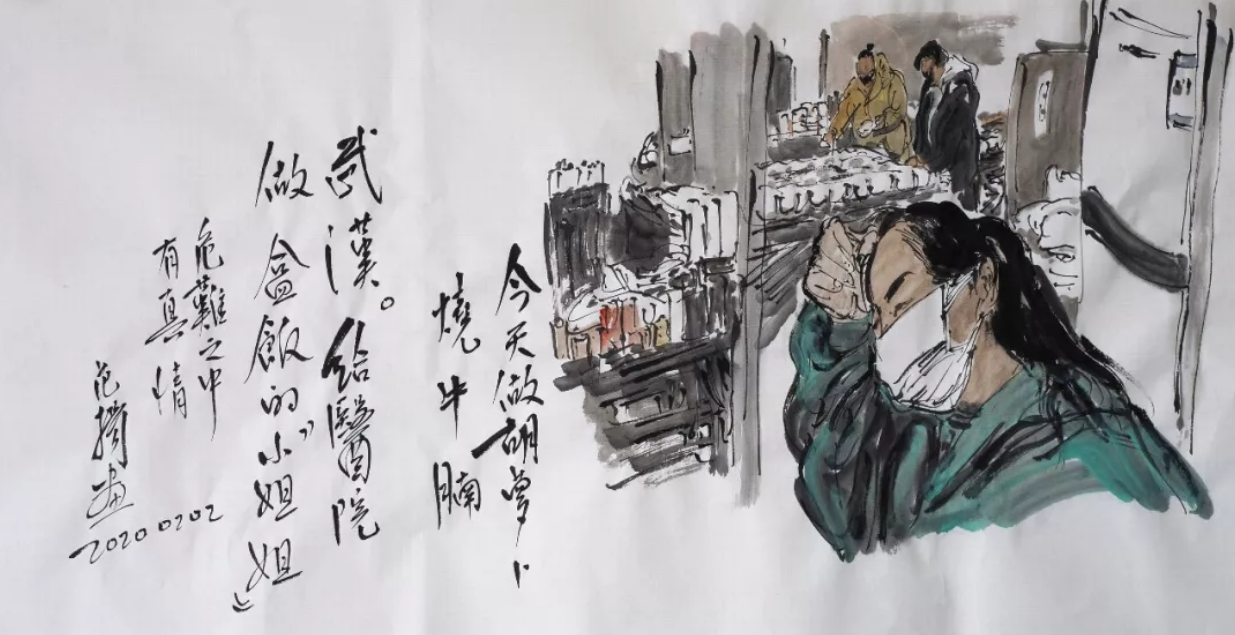 今天做胡萝卜
燒牛腩
武漢。給醫院
做盒飯的“小姐姐”
危難之中
有真情
范画
20200202